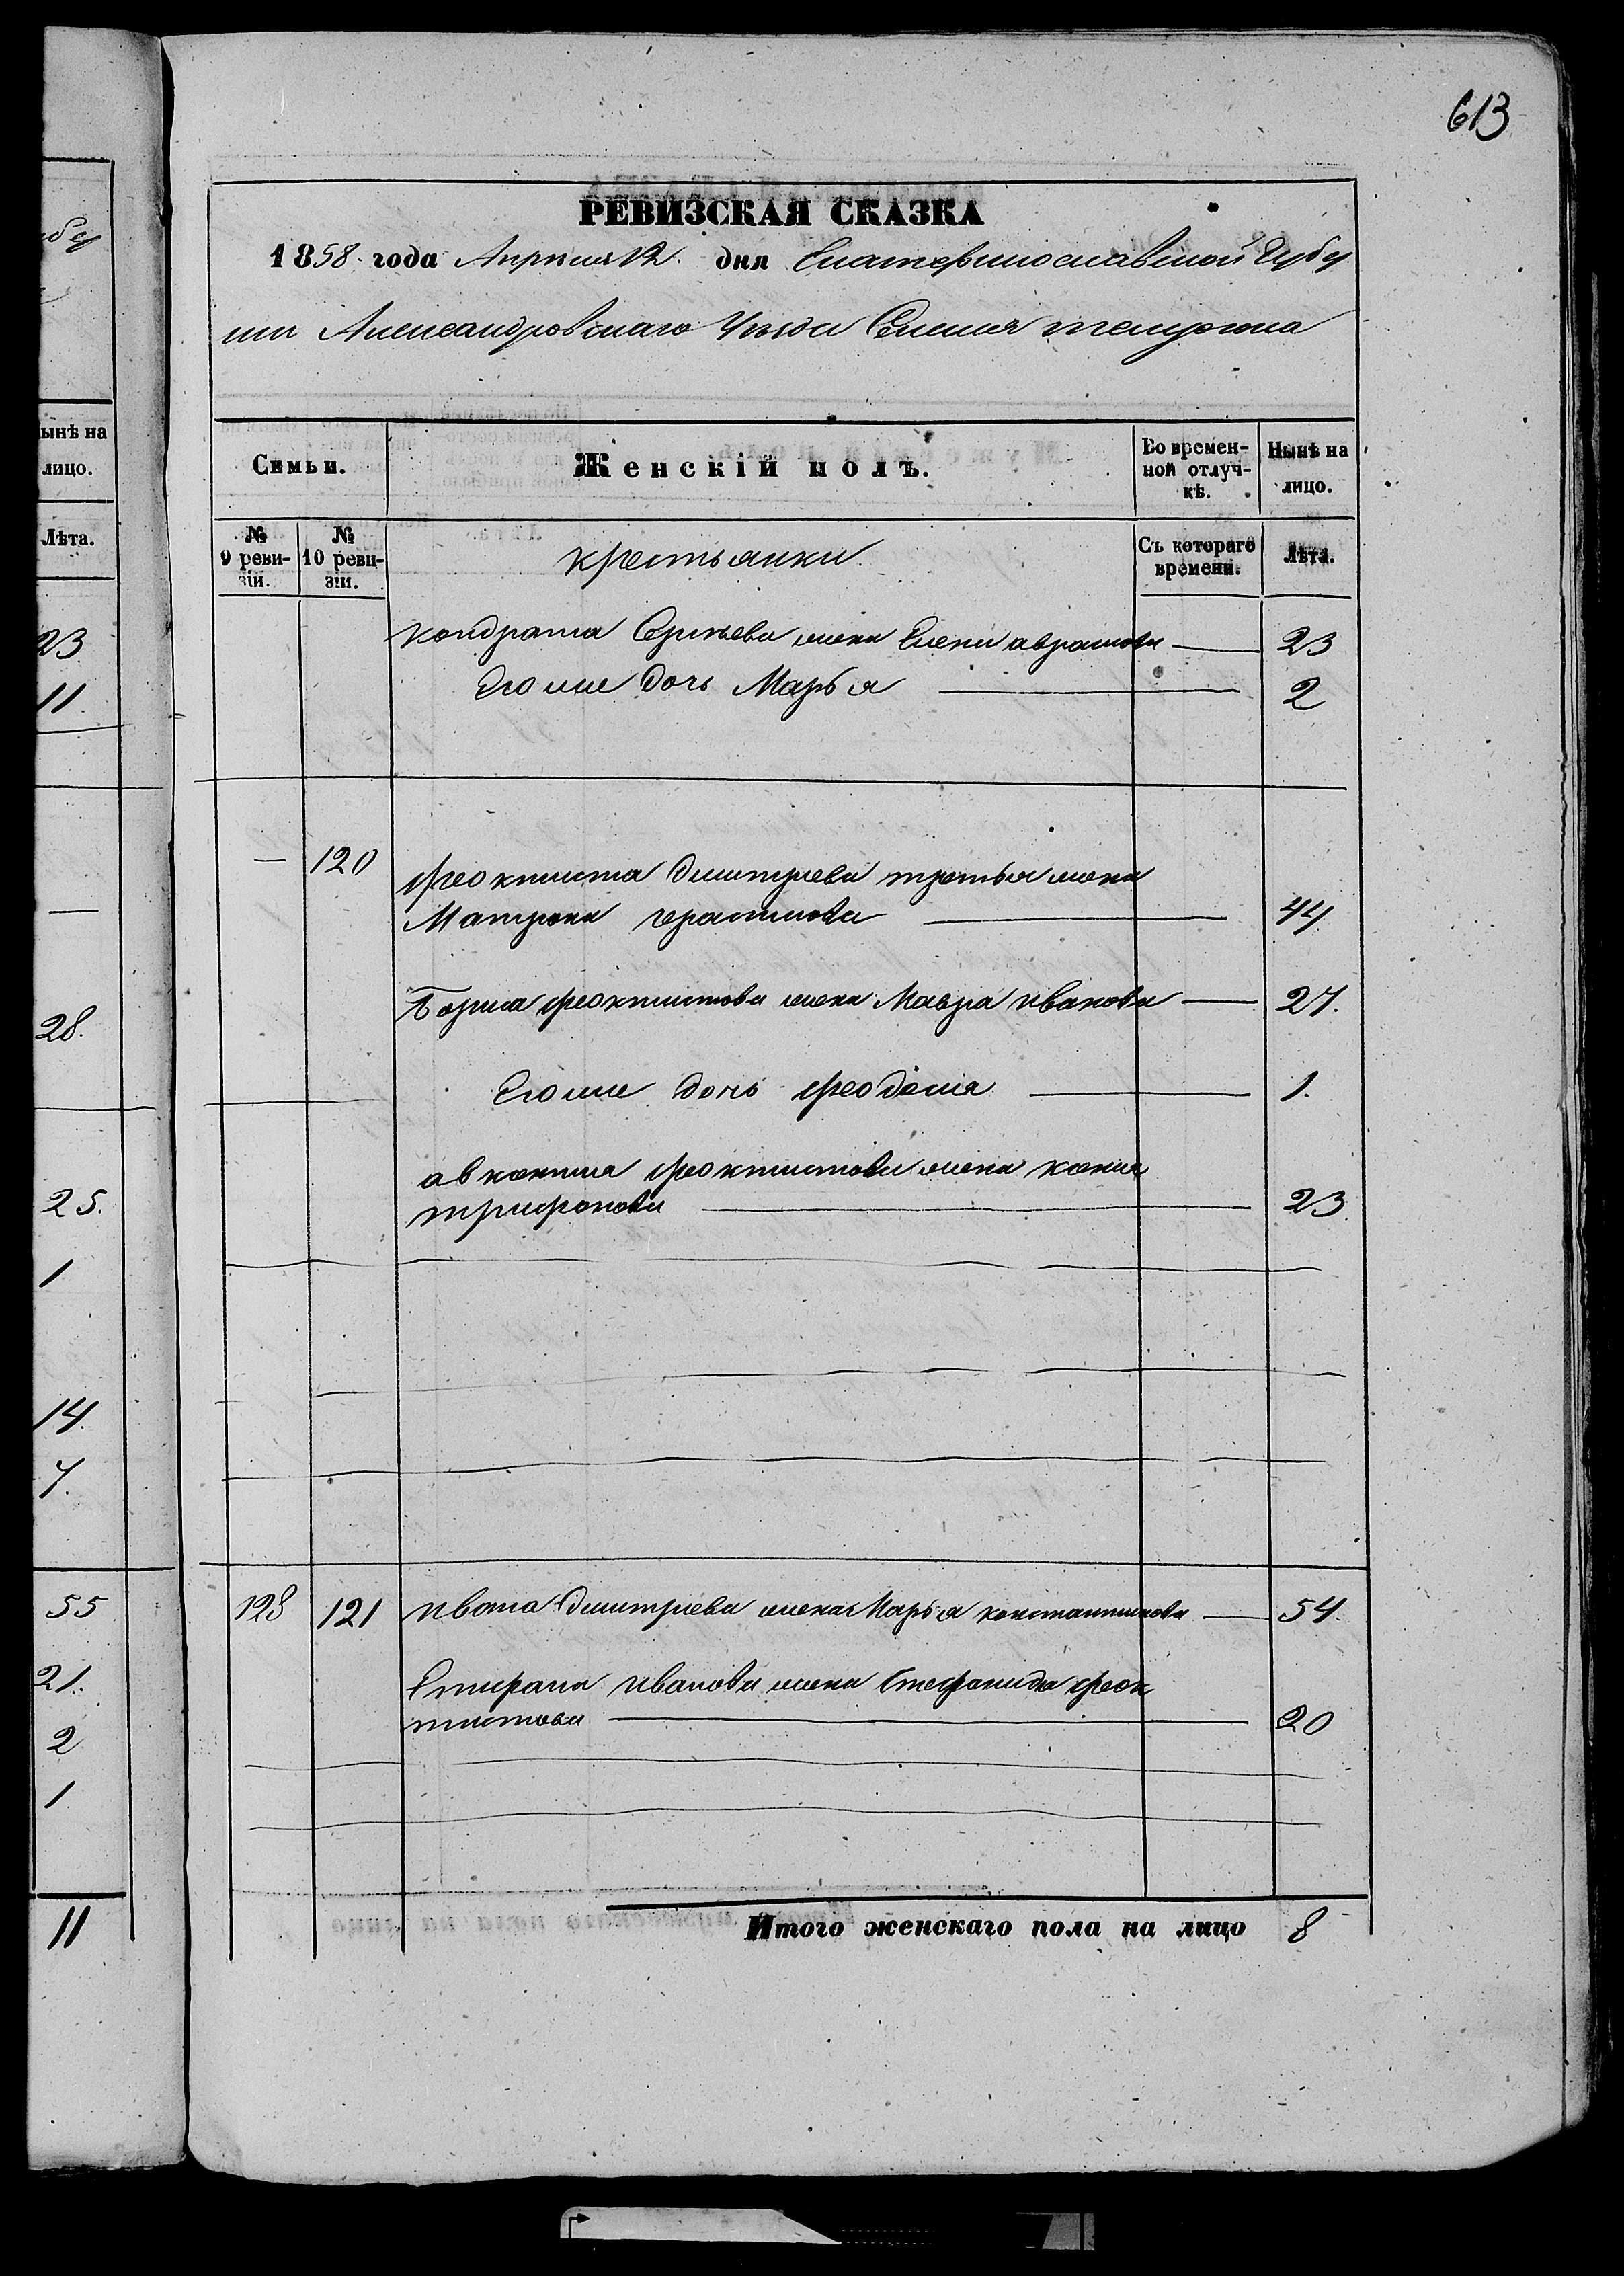 613
РЕВИЗСКАЯ СКАЗКА
1858 года Апреля 12 дня Екатеринославской Губер
нии Александровскаго Уезда Селения
Семьи.
Женскій полъ.
Во времен-
ной отлуч-
кѣ.
Нынѣ на
лицо.
№
9 реви-
зіи.
№
10 реви-
зіи.
крестьянки
Съ котораго
времени.
Лѣта.
кондрата Сергѣева жена Елена аврамова — 23
Его же дочь Марья — 2
— 120 феоктиста Дмитриева третья жена
Матрона герасимова — 44
Бориса феоктистова жена Мавра иванова — 27.
Его же дочь феодосия — 1.
авксентия феоктистова жена ксения
трифонова — 23.
128 121 ивана Дмитриева жена Марья константинова — 54.
иванова жена Стефанида феок
тистова — 20
Итого женскаго пола на лицо 8
ынѣ на
лицо.
Лѣта.
23
11
—
28.
25.
1
14.
7.
55
21.
2
1
11